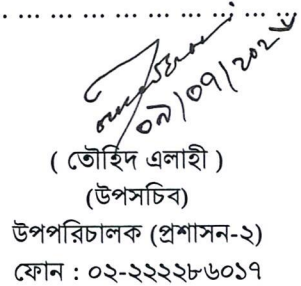 ... ... ... ... ... ... ... ... ...
০৯/০৭/২০২
( তৌহিদ এলাহী )
(উপসচিব)
উপপরিচালক (প্রশাসন-২)
ফোন : ০২-২২২২৮৬০১৭